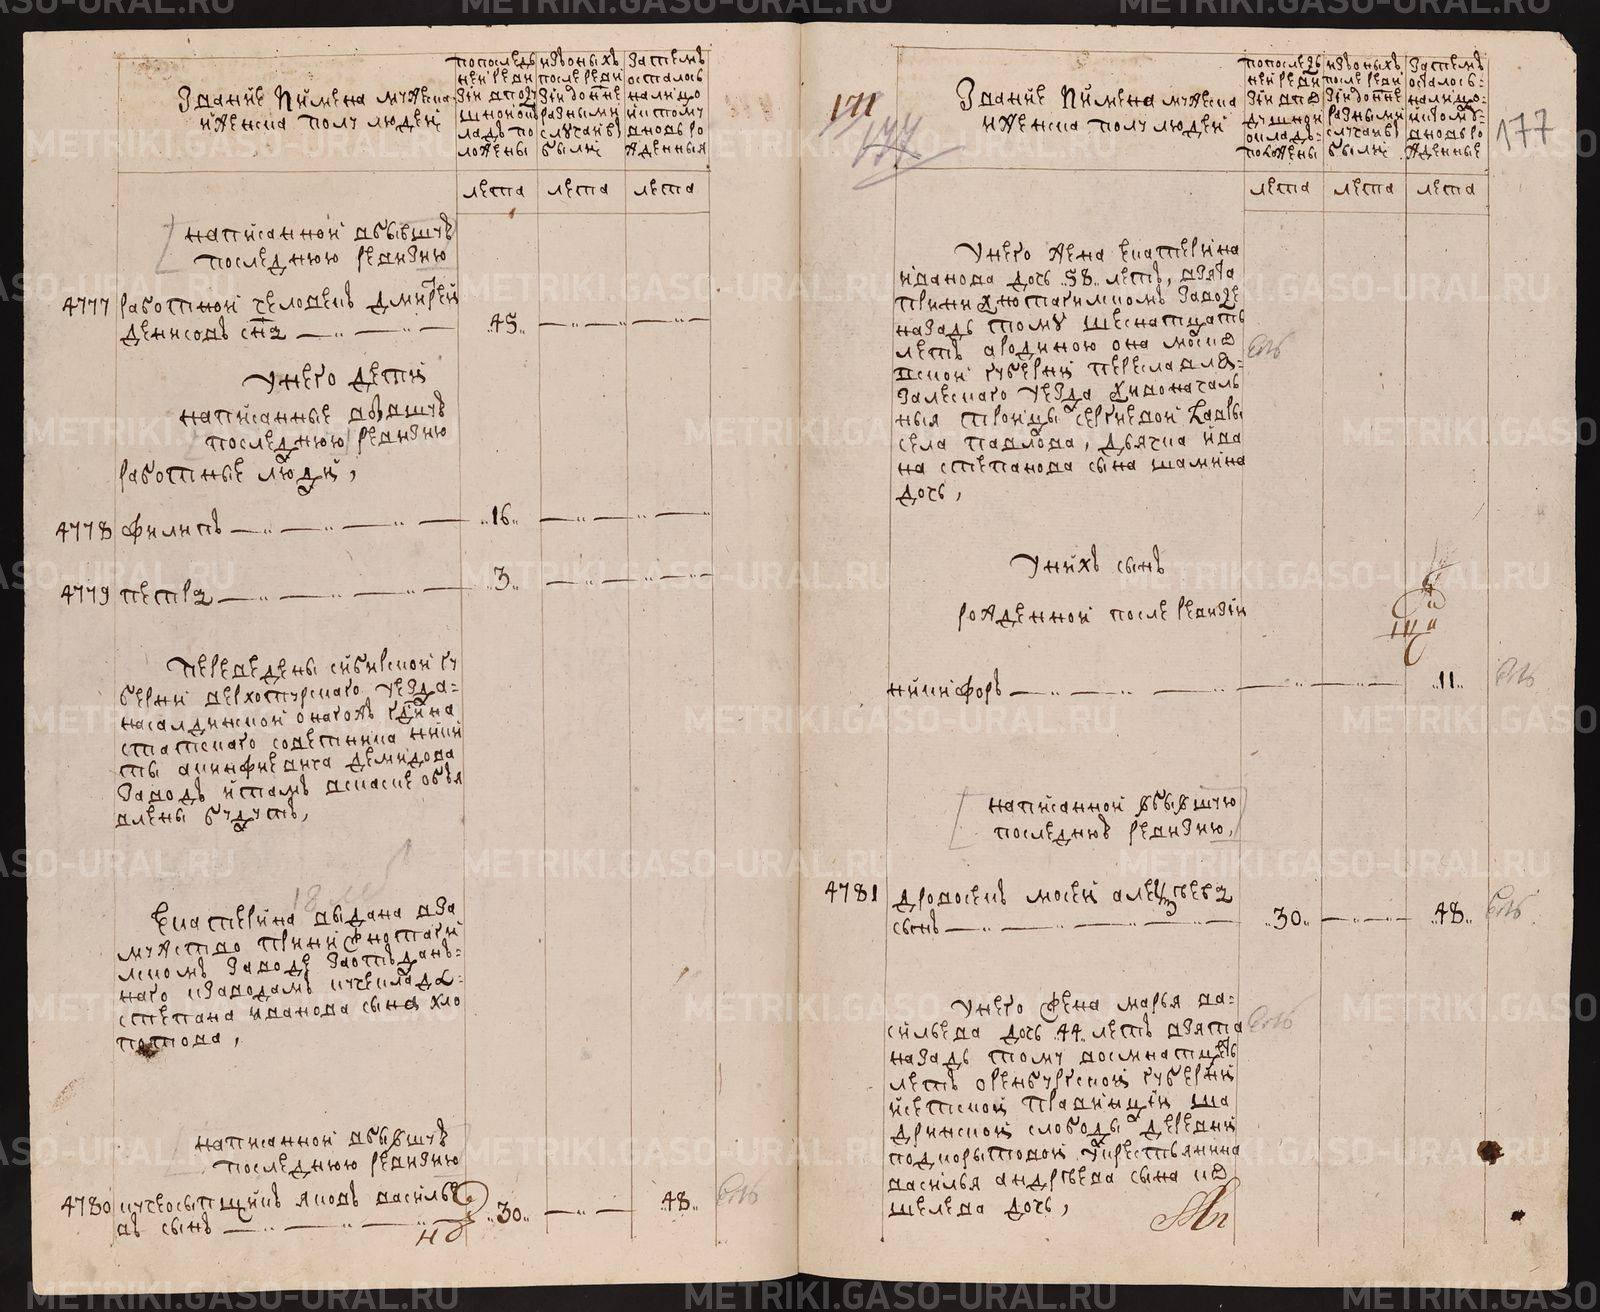 Звание и имена мужеска
и женска полу людей
попоследь
ней реви
зии в поду
шной ок
ладъ по
ложены
изъ оныхъ
после реви
зии до нне
разными
случаи
были
Затемъ
осталось
налицо
и к тому
вновь ро
жденныя
лета лета лета
написанной в бывшую
последнюю ревизию
4777 работной человекъ Дмитрей
Денисовъ снъ 45
У него дети
написанные в бывшую
последнюю ревизию
работные люди,
4778 Филипъ 16
4779 Петръ 3
переведены Сибирской гу
бернии Верхотурского уезда
на Салдинской онагожъ гдина
статского советника Ники
ты Акинфиевича Демидова
заводъ и тамъ в скаске объя
влены будутъ,
Екатерина выдана в за
мужство при Нижнотаги
лском заводе за отъдан
наго к заводамъ кучеклада
Степана Иванова сына Хло
потова,
написанной в бывшую
последнюю ревизию
4780 кучеосыпщикъ Яковъ Василье
въ сынъ 30 48 есть
171
177
Звание и имена мужеска
и женска полу людей
попоследь
ней реви
зии в по
душной
окладъ
положены
изъ оныхъ
после реви
зии до нне
разными
случаи
были
Затемъ
осталось
налицо
и к тому
вновь ро
жденные
177
лета лета лета
У него жена Екатерина
Иванова дочь 58 летъ, взята
при Нижнотагилском заводе
назадъ тому шеснатцать
летъ а родиною она Моско
вской губернии Переславля
Залеского уезда Живоначаль
ныя Троицы Сергиевой Лавры
села Павлова, дьячка Ива
на Степанова сына Шамина
дочь,
есть
У нихъ сынъ
рожденной после ревизии
Никифоръ 11 есть
написанной в бывшую
последнюю ревизию,
4781 дровосекъ Мосей Алексеевъ
сынъ 30 48 есть
У него жена Марья Ва
сильева дочь 44 летъ взята
назадъ тому восмнатцать
летъ Оренбургской губернии
Исетской правинции Ша
дринской слободы деревни
Подкорытовой у крестьянина
Василья Андреева сына Ко
шелева дочь,
есть